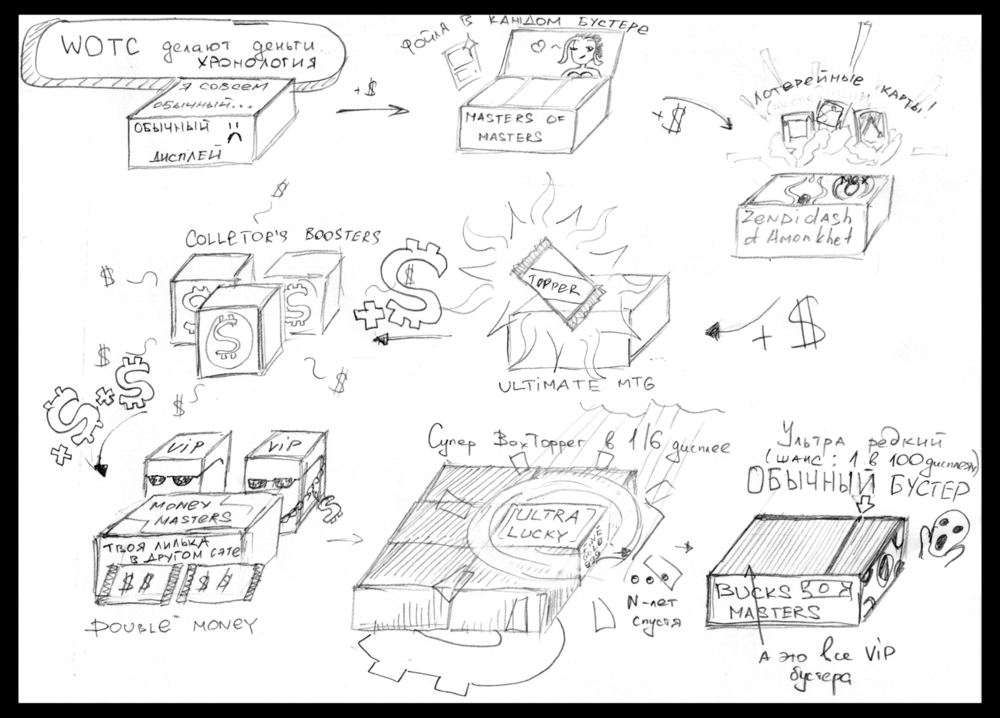 WOTC делают деньги
ХРОНОЛОГИЯ
Я СОВСЕМ
ОБЫЧНЫЙ...
ОБЫЧНЫЙ
ДИСПЛЕЙ
+$
ФОЙЛА В КАЖДОМ БУСТЕРЕ
MASTERS OF
MASTERS
+$
ЛОТЕРЕЙНЫЕ КАРТЫ!
Zendidash
of Amonkhet
+ $
TOPPER
ULTIMATE MTG
+ $
COLLETOR'S BOOSTERS
$
$
$
$
$
$
$
$
+ $ + $
VIP
VIP
MONEY
MASTERS
ТВОЯ ЛИЛЬКА
В ДРУГОМ СЕТЕ
$$ $$
$
DOUBLE MONEY
Супер BoxTopper в 1/6 дисплее
ULTRA
LUCKY
N-лет
спустя
Ультра редкий
(шанс: 1 в 100 дисплеях)
ОБЫЧНЫЙ БУСТЕР
BUCKS
MASTERS
А это все VIP
бустера